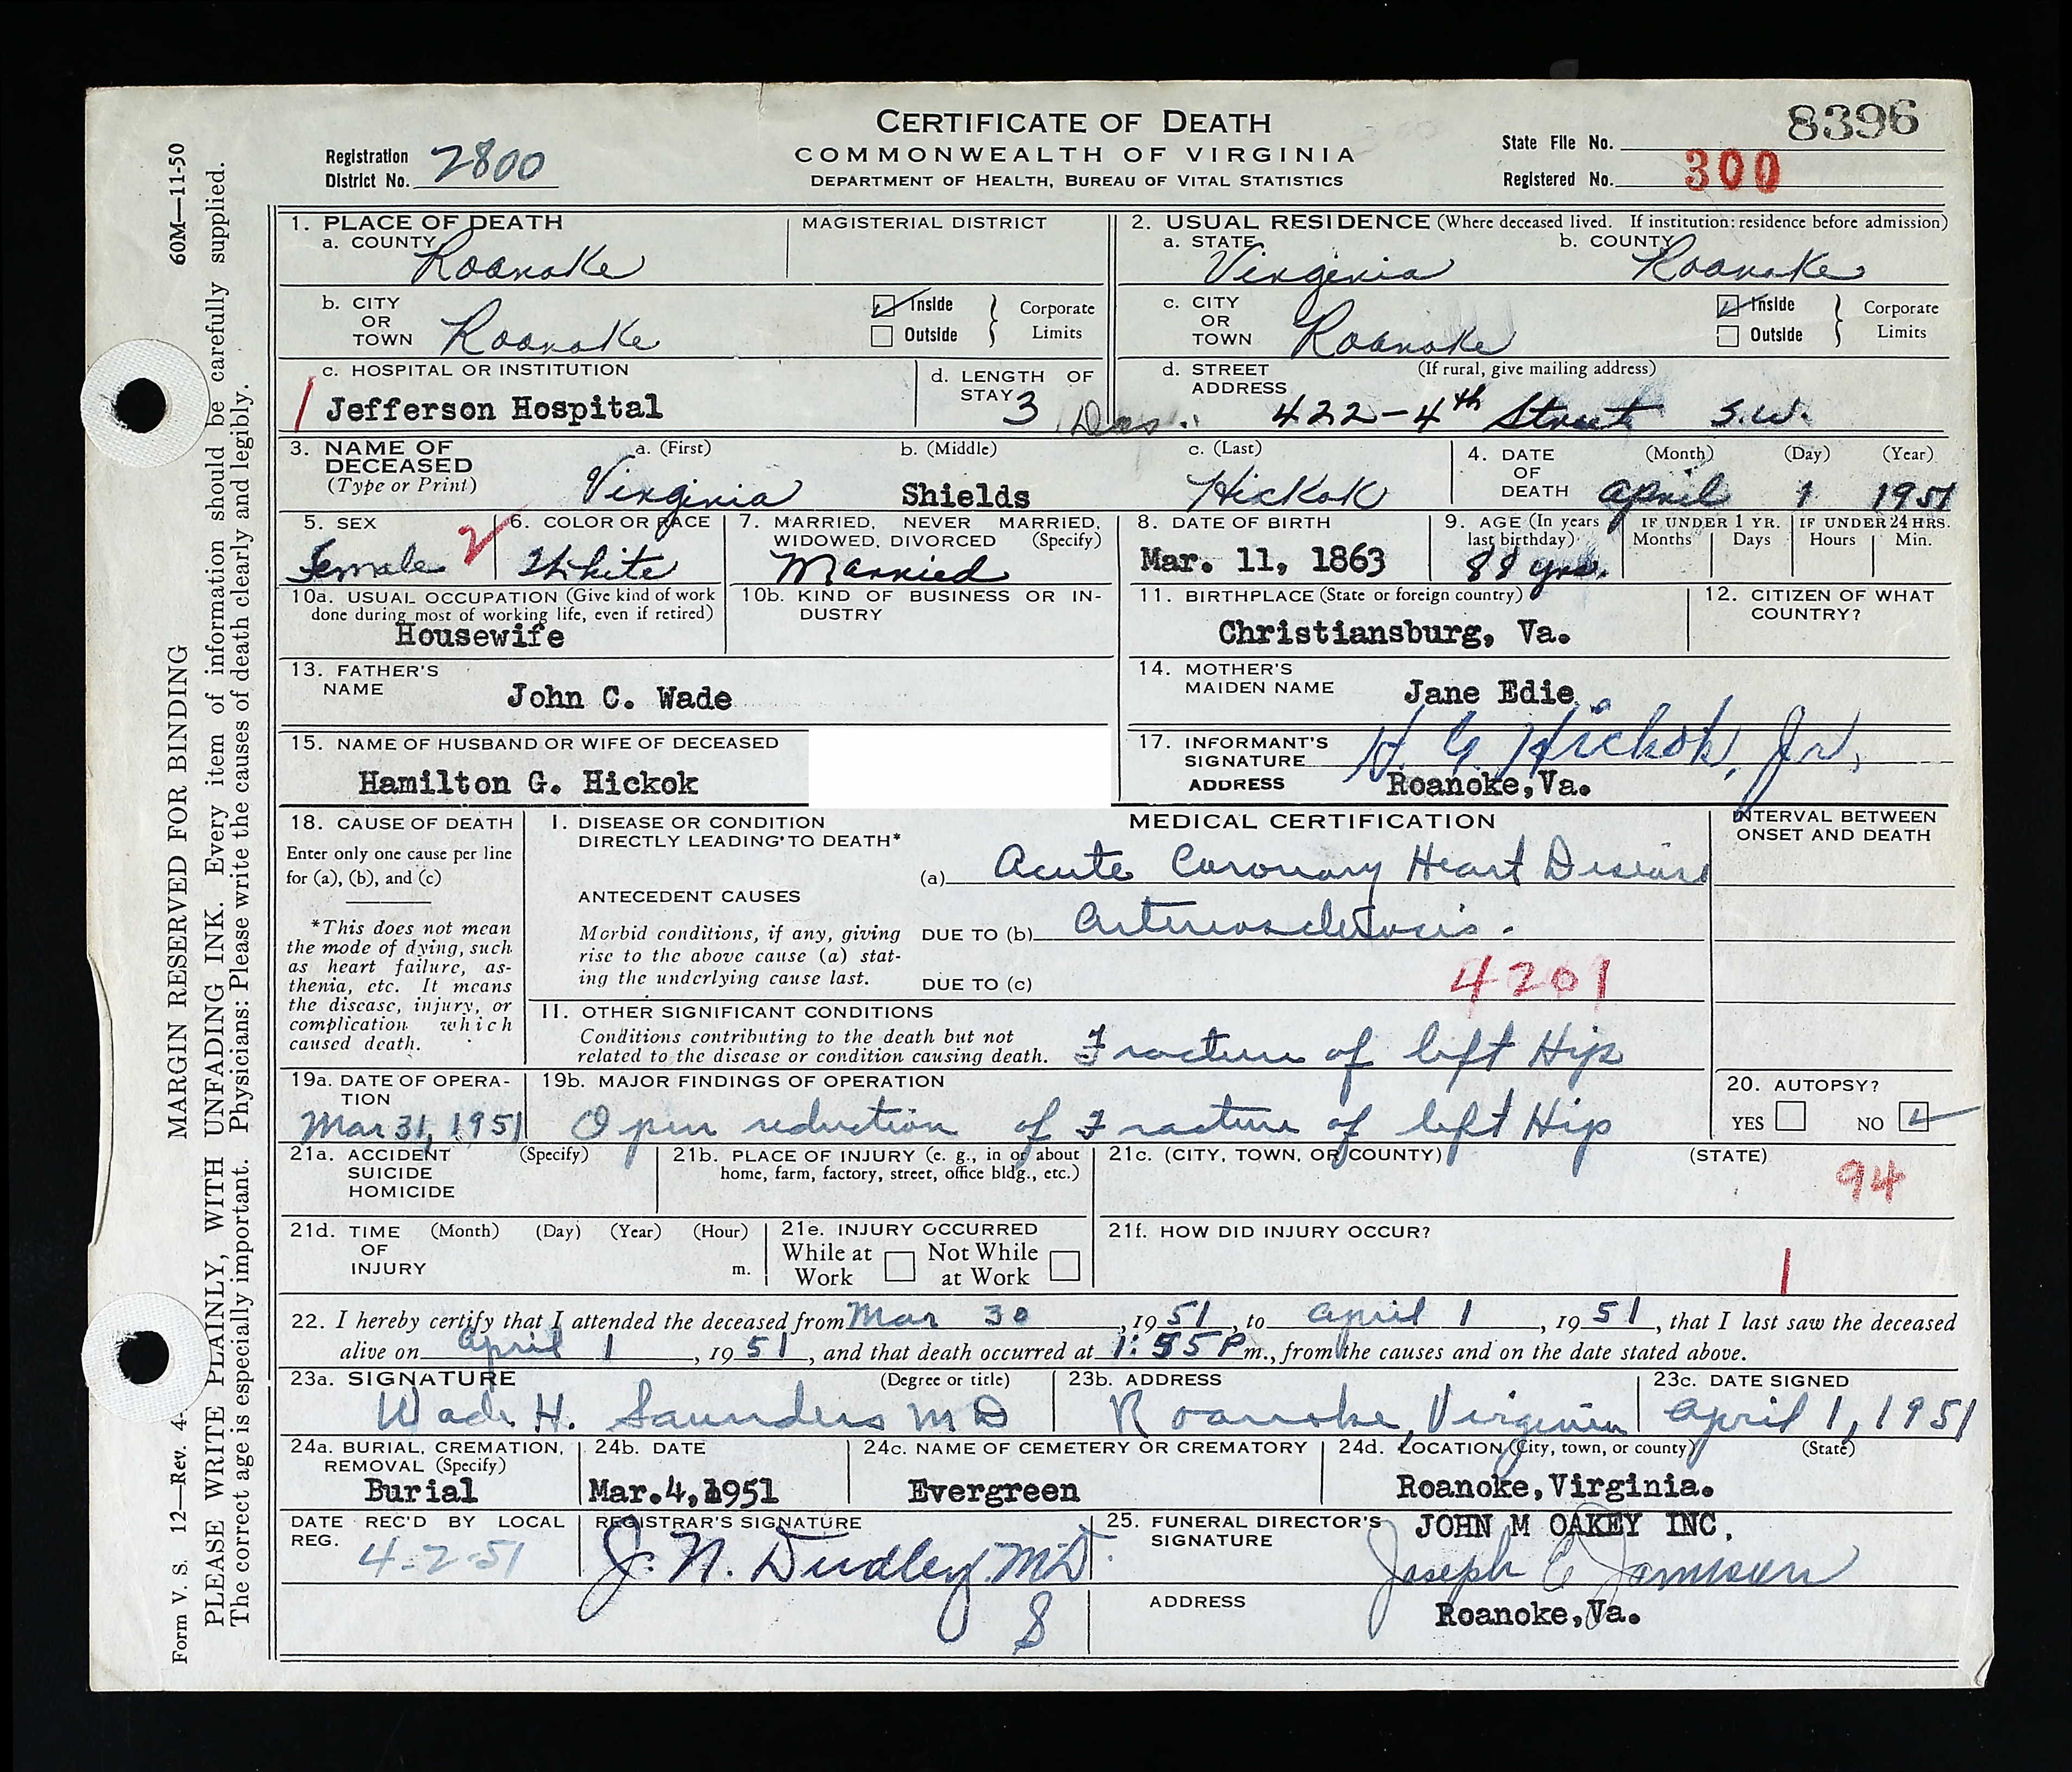 CERTIFICATE OF DEATH
COMMONWEALTH OF VIRGINIA
DEPARTMENT OF HEALTH, BUREAU OF VITAL STATISTICS
Registration District No. 2800
State File No. 8396
Registered No. 300
60M—11-50
MARGIN RESERVED FOR BINDING
PLEASE WRITE PLAINLY, WITH UNFADING INK. Every item of information should be carefully supplied.
The correct age is especially important. Physicians: Please write the causes of death clearly and legibly.
Form V. S. 12—Rev. 4-
1. PLACE OF DEATH
a. COUNTY Roanoke
MAGISTERIAL DISTRICT
2. USUAL RESIDENCE (Where deceased lived. If institution: residence before admission)
a. STATE Virginia
b. COUNTY Roanoke
b. CITY OR TOWN Roanoke
Inside
Outside
Corporate Limits
c. CITY OR TOWN Roanoke
Inside
Outside
Corporate Limits
c. HOSPITAL OR INSTITUTION
Jefferson Hospital
d. LENGTH OF STAY 3
d. STREET ADDRESS (If rural, give mailing address)
422-4th Street S.W.
3. NAME OF DECEASED (Type or Print)
a. (First) Virginia
b. (Middle) Shields
c. (Last) Hickok
4. DATE OF DEATH (Month) (Day) (Year)
April 1 1951
5. SEX
Female
2
6. COLOR OR RACE
White
7. MARRIED, NEVER MARRIED, WIDOWED, DIVORCED (Specify)
Married
8. DATE OF BIRTH
Mar. 11, 1863
9. AGE (In years last birthday)
88 yrs.
IF UNDER 1 YR.
Months Days
IF UNDER 24 HRS.
Hours Min.
10a. USUAL OCCUPATION (Give kind of work done during most of working life, even if retired)
Housewife
10b. KIND OF BUSINESS OR INDUSTRY
11. BIRTHPLACE (State or foreign country)
Christiansburg, Va.
12. CITIZEN OF WHAT COUNTRY?
13. FATHER'S NAME
John C. Wade
14. MOTHER'S MAIDEN NAME
Jane Edie
15. NAME OF HUSBAND OR WIFE OF DECEASED
Hamilton G. Hickok
17. INFORMANT'S SIGNATURE H. G. Hickok, Jr.
ADDRESS Roanoke,Va.
18. CAUSE OF DEATH
Enter only one cause per line for (a), (b), and (c)
*This does not mean the mode of dying, such as heart failure, asthenia, etc. It means the disease, injury, or complication which caused death.
MEDICAL CERTIFICATION
INTERVAL BETWEEN ONSET AND DEATH
I. DISEASE OR CONDITION DIRECTLY LEADING TO DEATH*
(a) Acute Coronary Heart Disease
ANTECEDENT CAUSES
Morbid conditions, if any, giving rise to the above cause (a) stating the underlying cause last.
DUE TO (b) Arteriosclerosis.
DUE TO (c)
4201
II. OTHER SIGNIFICANT CONDITIONS
Conditions contributing to the death but not related to the disease or condition causing death.
Fracture of left Hip
19a. DATE OF OPERATION
Mar 31, 1951
19b. MAJOR FINDINGS OF OPERATION
Open reduction of Fracture of left Hip
20. AUTOPSY?
YES NO
21a. ACCIDENT SUICIDE HOMICIDE (Specify)
21b. PLACE OF INJURY (e. g., in or about home, farm, factory, street, office bldg., etc.)
21c. (CITY, TOWN, OR COUNTY) (STATE)
94
21d. TIME OF INJURY (Month) (Day) (Year) (Hour) m.
21e. INJURY OCCURRED
While at Work Not While at Work
21f. HOW DID INJURY OCCUR?
1
22. I hereby certify that I attended the deceased from Mar 30, 1951, to April 1, 1951, that I last saw the deceased
alive on April 1, 1951, and that death occurred at 1:55 P m., from the causes and on the date stated above.
23a. SIGNATURE (Degree or title)
Wade H. Saunders MD
23b. ADDRESS
Roanoke, Virginia
23c. DATE SIGNED
April 1, 1951
24a. BURIAL, CREMATION, REMOVAL (Specify)
Burial
24b. DATE
Mar.4, 1951
24c. NAME OF CEMETERY OR CREMATORY
Evergreen
24d. LOCATION (City, town, or county) (State)
Roanoke,Virginia.
DATE REC'D BY LOCAL REG.
4-2-51
REGISTRAR'S SIGNATURE
J. N. Dudley MD.
S
25. FUNERAL DIRECTOR'S SIGNATURE
JOHN M OAKEY INC.
Joseph E Jamison
ADDRESS
Roanoke,Va.